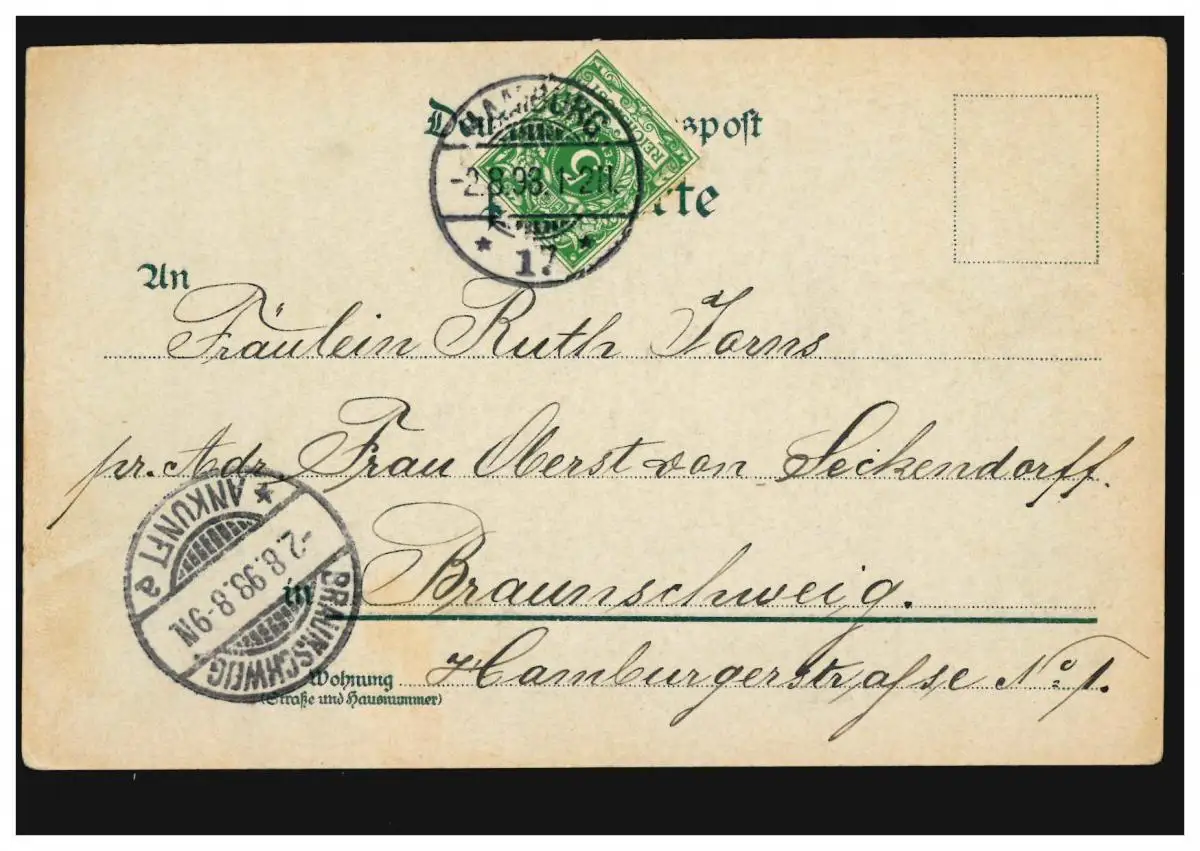 HAMBURG
-2.8.98.1-2N.
* 17 *
REICHSPOST
5
spost
rte
An
Fräulein Ruth Jorns
pr. Adr. Frau Oberst von Seckendorff.
in Braunschweig.
Wohnung Hamburgerstrafse No. 1.
(Straße und Hausnummer)
BRAUNSCHWEIG.
-2.8.98.8-9N
* ANKUNFT a